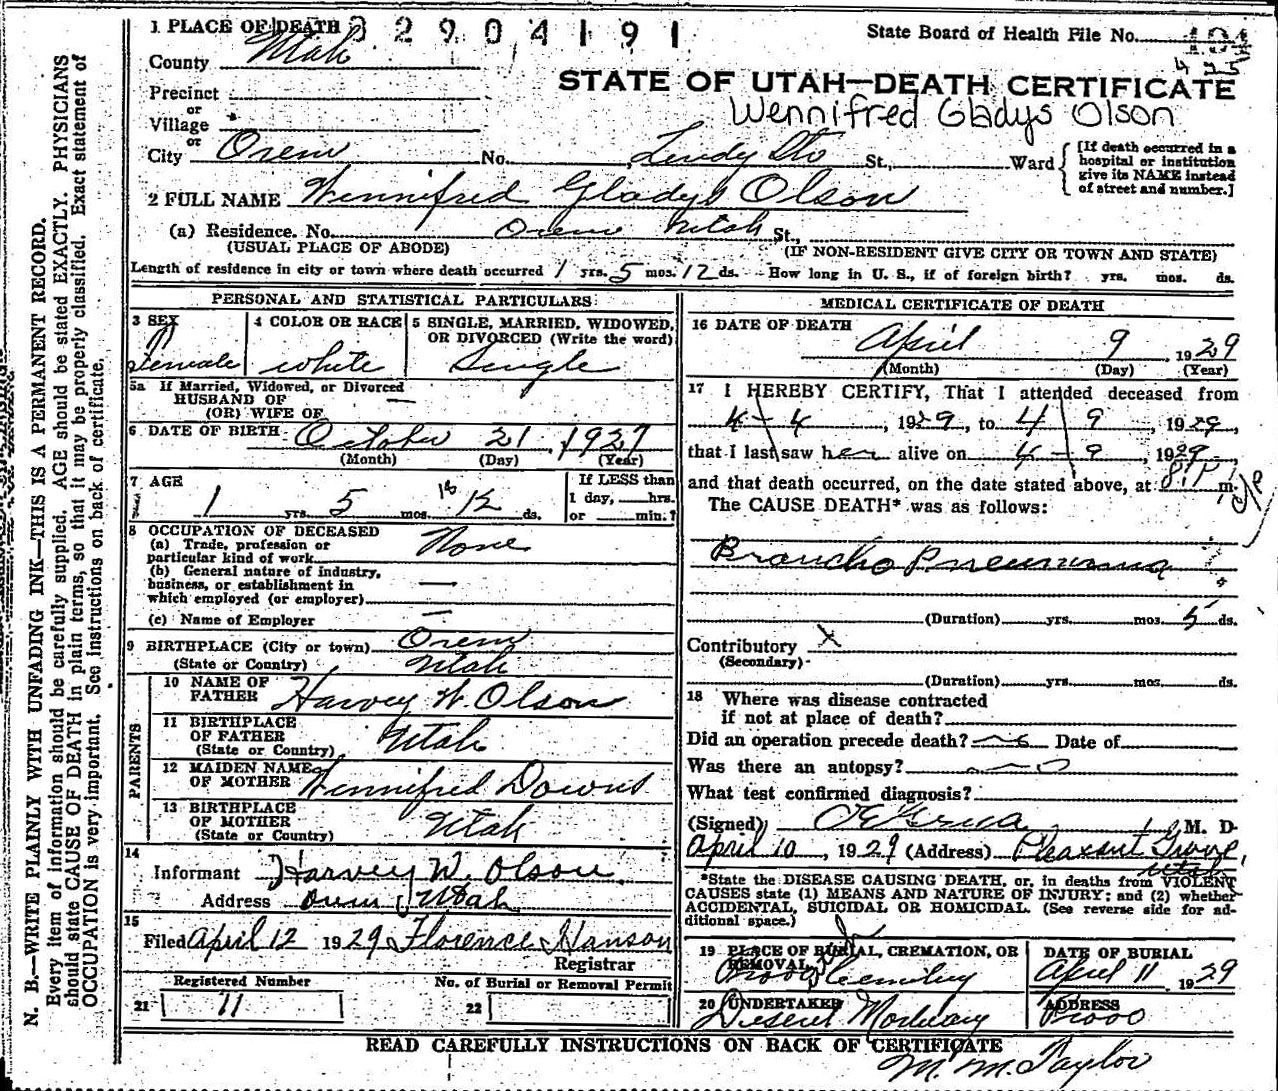 1 PLACE OF DEATH 32904191
State Board of Health File No.
County Utah
425
STATE OF UTAH—DEATH CERTIFICATE
Precinct
or
Village
Wennifred Gladys Olson
or
City Orem No. St., Ward
[If death occurred in a hospital or institution give its NAME instead of street and number.]
2 FULL NAME Winnifred Gladys Olson
(a) Residence. No. Orem Utah St.,
(USUAL PLACE OF ABODE) (IF NON-RESIDENT GIVE CITY OR TOWN AND STATE)
Length of residence in city or town where death occurred 1 yrs. 5 mos. 12 ds. How long in U. S., if of foreign birth? yrs. mos. ds.
PERSONAL AND STATISTICAL PARTICULARS
3 SEX 4 COLOR OR RACE 5 SINGLE, MARRIED, WIDOWED, OR DIVORCED (Write the word)
Female white Single
5a If Married, Widowed, or Divorced
HUSBAND OF —
(OR) WIFE OF
6 DATE OF BIRTH October 21, 1927
(Month) (Day) (Year)
7 AGE If LESS than
1 yrs. 5 mos. 18 12 ds. 1 day, hrs.
or min.?
8 OCCUPATION OF DECEASED
(a) Trade, profession or
particular kind of work None
(b) General nature of industry,
business, or establishment in
which employed (or employer) —
(c) Name of Employer —
9 BIRTHPLACE (City or town) Orem
(State or Country) Utah
PARENTS
10 NAME OF
FATHER Harvey W. Olson
11 BIRTHPLACE
OF FATHER Utah
(State or Country)
12 MAIDEN NAME
OF MOTHER Winnifred Downs
13 BIRTHPLACE
OF MOTHER Utah
(State or Country)
14
Informant Harvey W. Olson
Address Orem, Utah
15
Filed April 12 1929 Florence Hanson
Registrar
Registered Number No. of Burial or Removal Permit
21 11 22
MEDICAL CERTIFICATE OF DEATH
16 DATE OF DEATH
April 9, 1929
(Month) (Day) (Year)
17 I HEREBY CERTIFY, That I attended deceased from
4 - 4, 1929, to 4 9, 1929,
that I last saw her alive on 4 - 9, 1929,
and that death occurred, on the date stated above, at 8:P m.
The CAUSE DEATH* was as follows:
Broncho Pneumonia
(Duration) yrs. mos. 5 ds.
Contributory X
(Secondary)
(Duration) yrs. mos. ds.
18 Where was disease contracted
if not at place of death?
Did an operation precede death? no Date of
Was there an autopsy? no
What test confirmed diagnosis?
(Signed) M. D.
April 10, 1929 (Address) Pleasant Grove,
Utah
*State the DISEASE CAUSING DEATH, or, in deaths from VIOLENT
CAUSES state (1) MEANS AND NATURE OF INJURY; and (2) whether
ACCIDENTAL, SUICIDAL OR HOMICIDAL. (See reverse side for ad-
ditional space.)
19 PLACE OF BURIAL, CREMATION, OR DATE OF BURIAL
REMOVAL
Provo Cemetery April 11, 1929
20 UNDERTAKER ADDRESS
Deseret Mortuary Provo
READ CAREFULLY INSTRUCTIONS ON BACK OF CERTIFICATE
M. M. Taylor
N. B.—WRITE PLAINLY WITH UNFADING INK—THIS IS A PERMANENT RECORD.
Every item of information should be carefully supplied. AGE should be stated EXACTLY. PHYSICIANS
should state CAUSE OF DEATH in plain terms, so that it may be properly classified. Exact statement of
OCCUPATION is very important. See instructions on back of certificate.